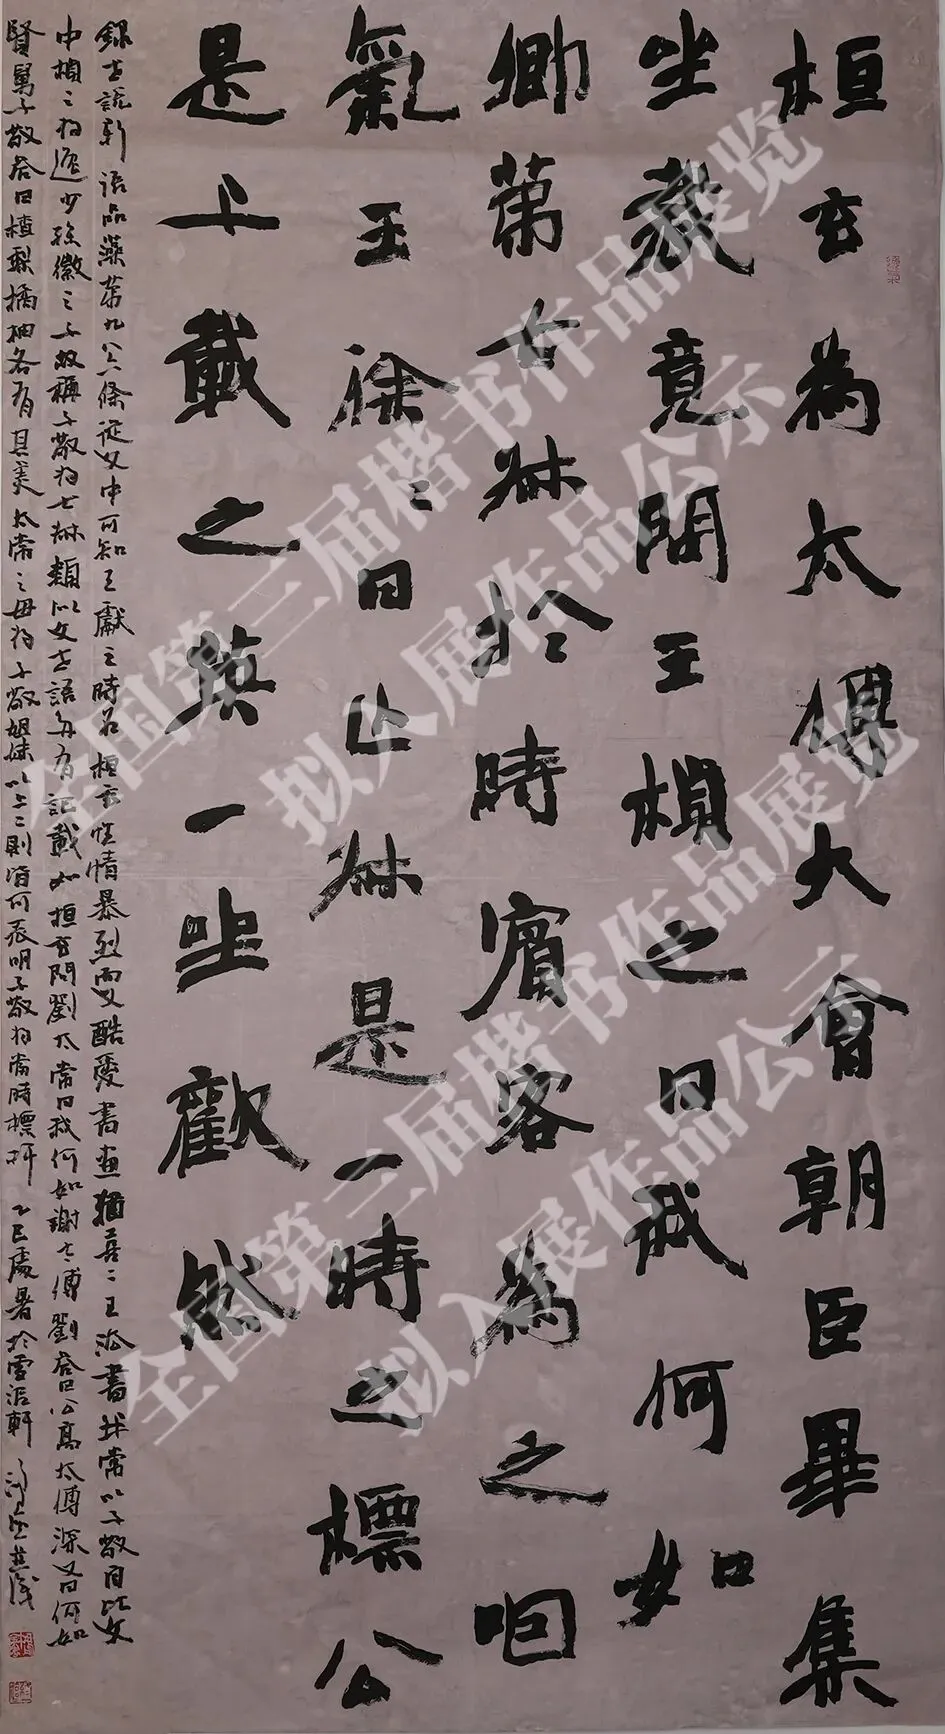 桓玄為太傅大會朝臣畢集
坐裁竟問王楨之曰我何如
卿第七叔於時賓客為之咽
氣王徐〻曰亡叔是一時之標公
是千載之英一坐歡然
錄世說新語品藻第九八六條從文中可知王獻之時名桓玄性情暴烈而又酷愛書畫猶喜二王法書并常以子敬自比文
中楨之為逸少孫徽之子故稱子敬為七叔類似文世語多有記載如桓玄問劉太常曰我何如謝太傅劉答曰公高太傅深又曰何如
賢舅子敬答曰樝梨橘柚各有其美太常之母為子敬姐妹以上二則皆可表明子敬為當時標杆 乙巳處暑於雪涯軒
全国第三届楷书作品展览
拟入展作品公示
全国第三届楷书作品展览
拟入展作品公示